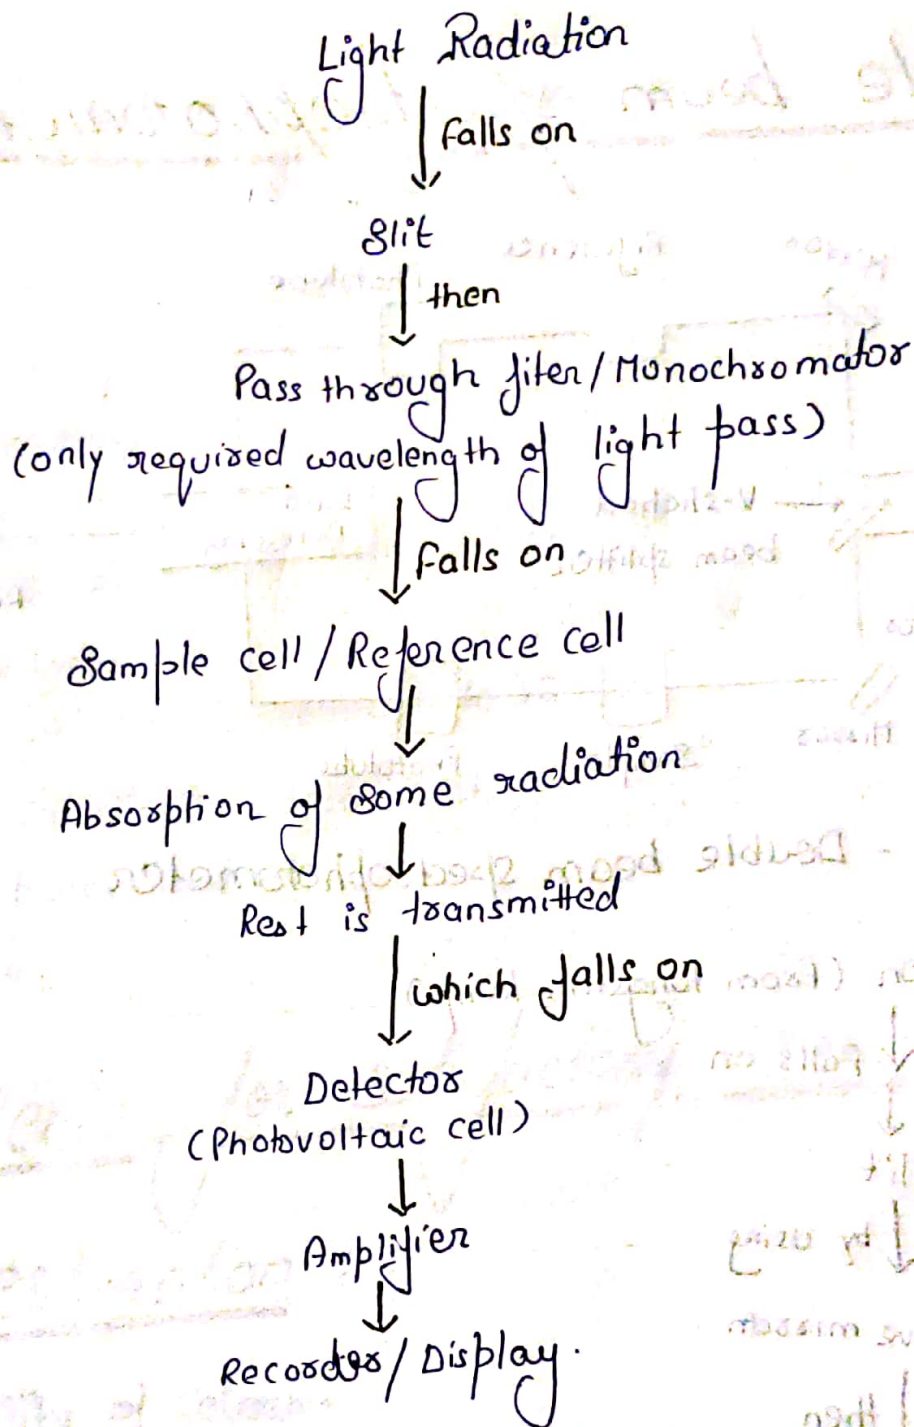 Light Radiation
falls on
Slit
then
Pass through fiter/Monochromator
(only required wavelength of light pass)
falls on
Sample cell/Reference cell
Absorption of some radiation
Rest is transmitted
which falls on
Detector
(Photovoltaic cell)
Amplifier
Recorder/Display.